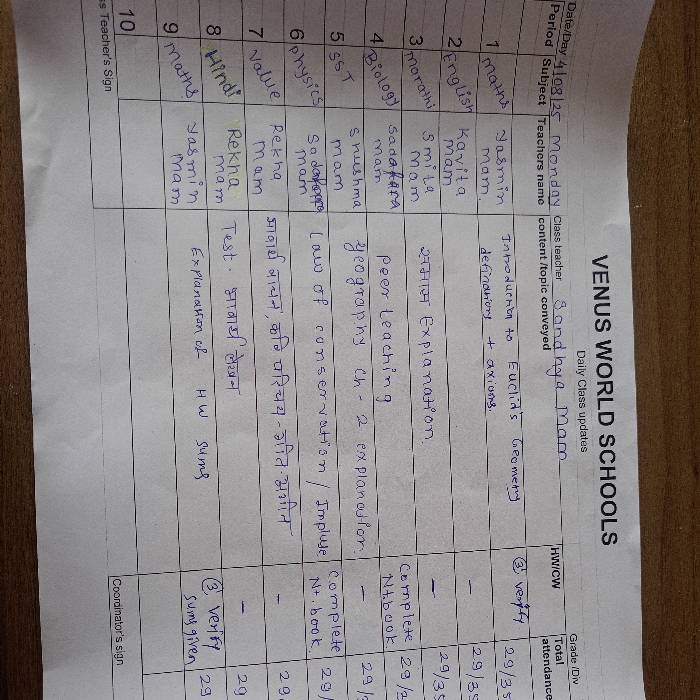 VENUS WORLD SCHOOLS
Daily Class updates
Date/Day 4/08/25 Monday Class teacher Sandhya Mam Grade /Div
Period Subject Teachers name content /topic conveyed HW/CW Total attendance
1 maths Yasmin mam. Introduction to Euclid's Geometry definations + axioms. ② verify 29/35
2 English Kavita mam - 29/35
3 marathi Smita mam Explanation. - 29/35
4 Biology mam peer teaching Complete Nt.book 29/
5 SST Shushma mam geography ch-2 explanation. - 29/
6 physics mam law of conservation / Impluse Complete Nt.book. 29/
7 Value Rekha mam भावार्थ कवि परिचय - - 29
8 Hindi Rekha mam Test. भावार्थ लेखन - 29
9 maths Yasmin mam Explanation of HW sums ③ verify sums given 29
10
ss Teacher's Sign Coordinator's sign